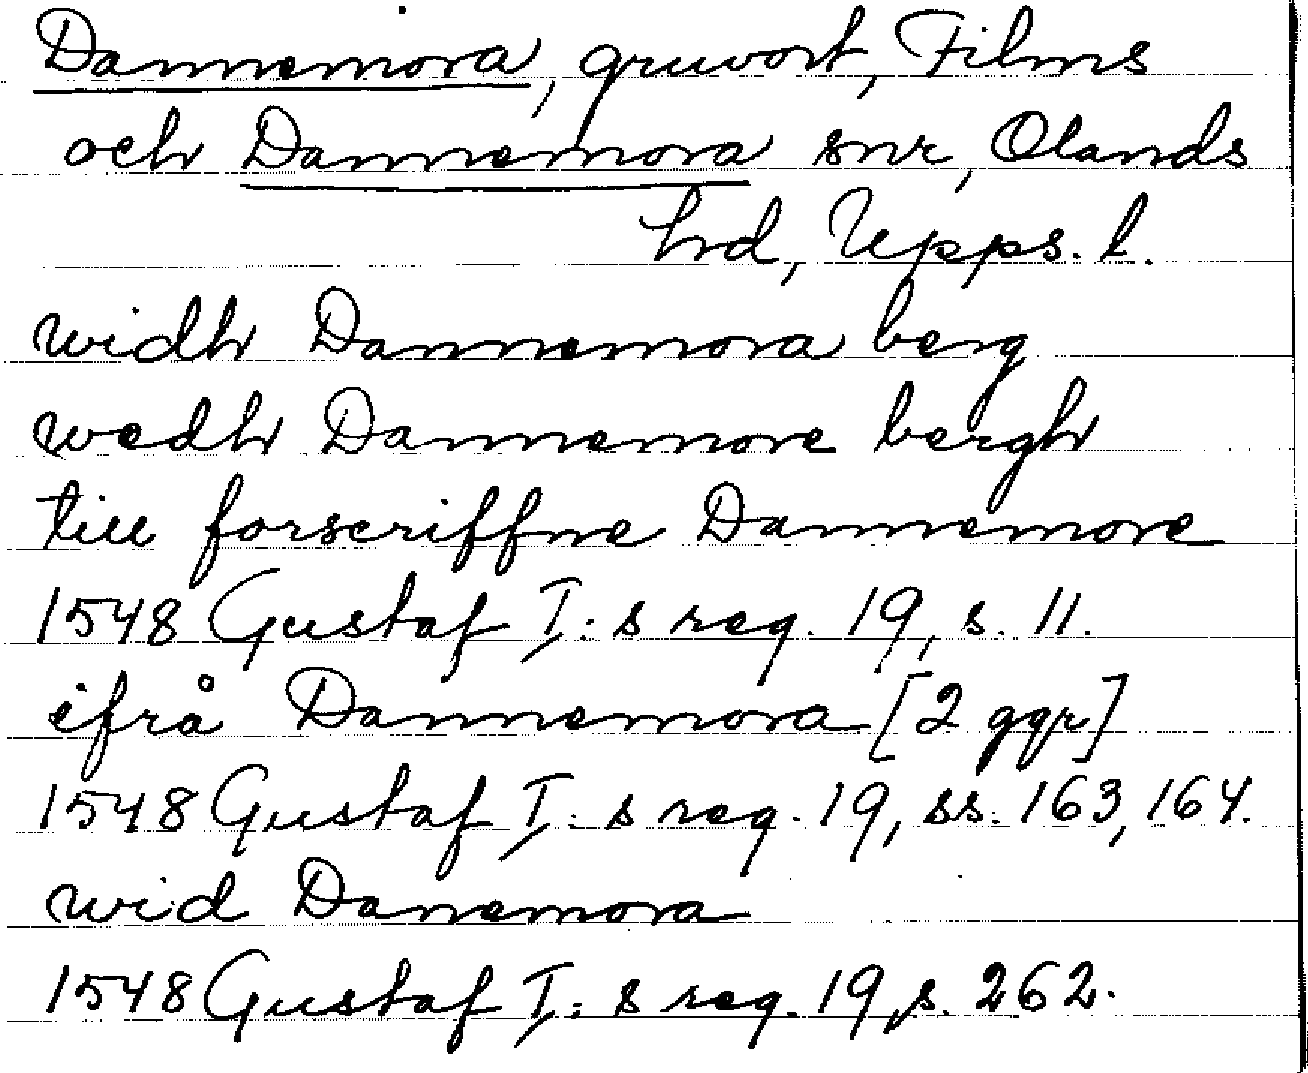 Dannemora, gruvort, Films
och Dannemora snr, Olands
hrd, Upps. l.
widh Dannemora berg
wedh Dannemore bergh
till forscriffne Dannemore
1548 Gustaf I: s reg. 19, s. 11.
ifrå Dannemora [2 ggr]
1548 Gustaf I: s reg. 19, ss. 163, 164.
wid Danemora
1548 Gustaf I: s reg. 19, s. 262.